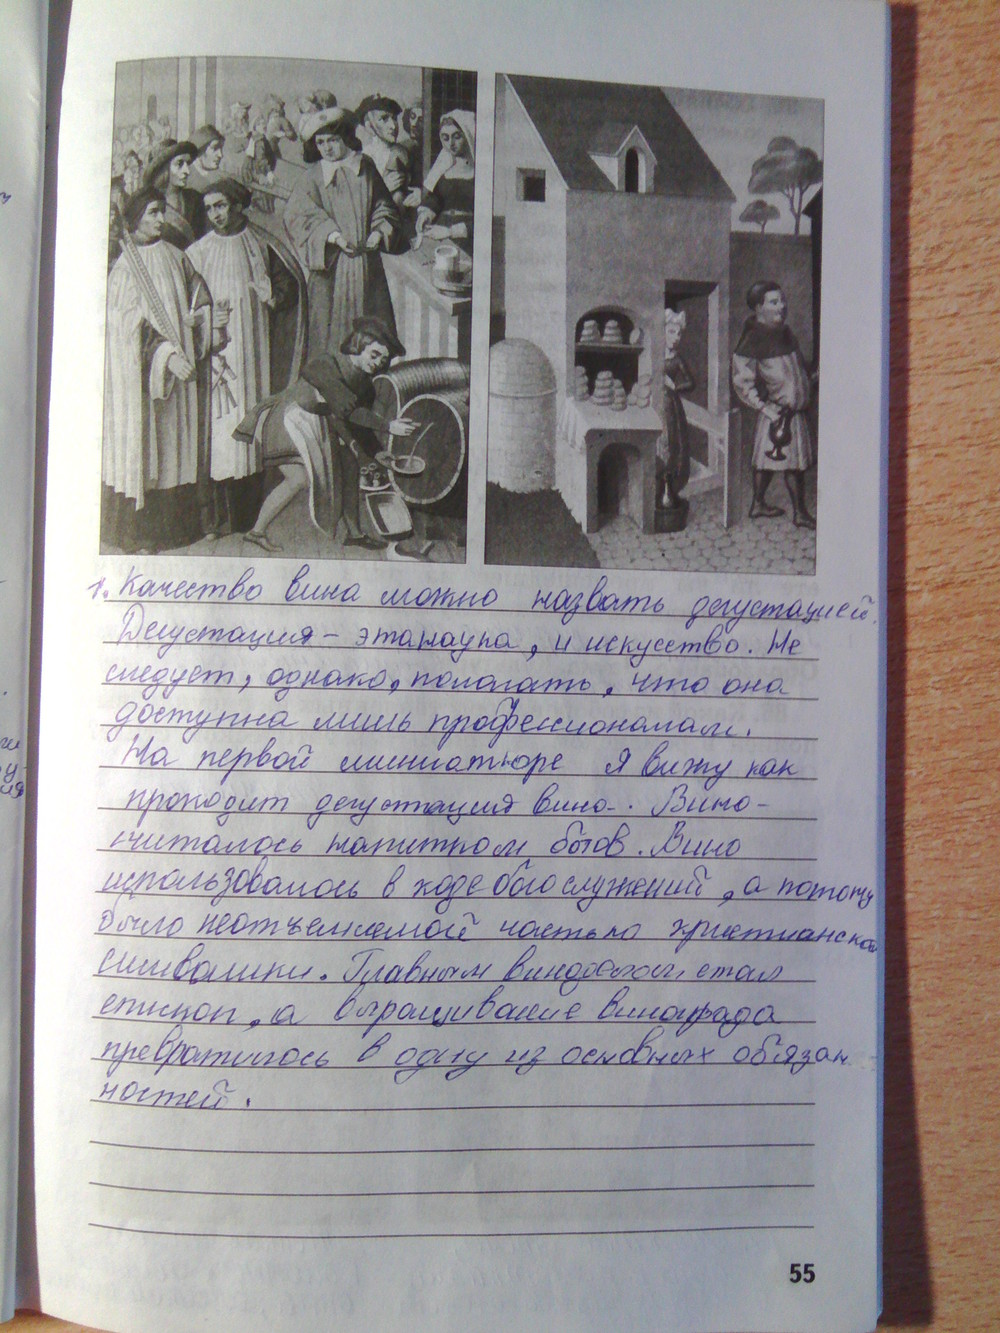 1. Качество вина можно назвать дегустацией.
Дегустация – это наука, и искусство. Не
следует, однако, полагать, что она
доступна лишь профессионалам.
На первой миниатюре я вижу как
проходит дегустация вина. Вино-
считалось напитком богов. Вино
использовалось в ходе богослужений, а потому
было неотъемлемой частью христианской
символики. Главным виноделом стал
епископ, а выращивание винограда
превратилось в одну из основных обязан
ностей.
55